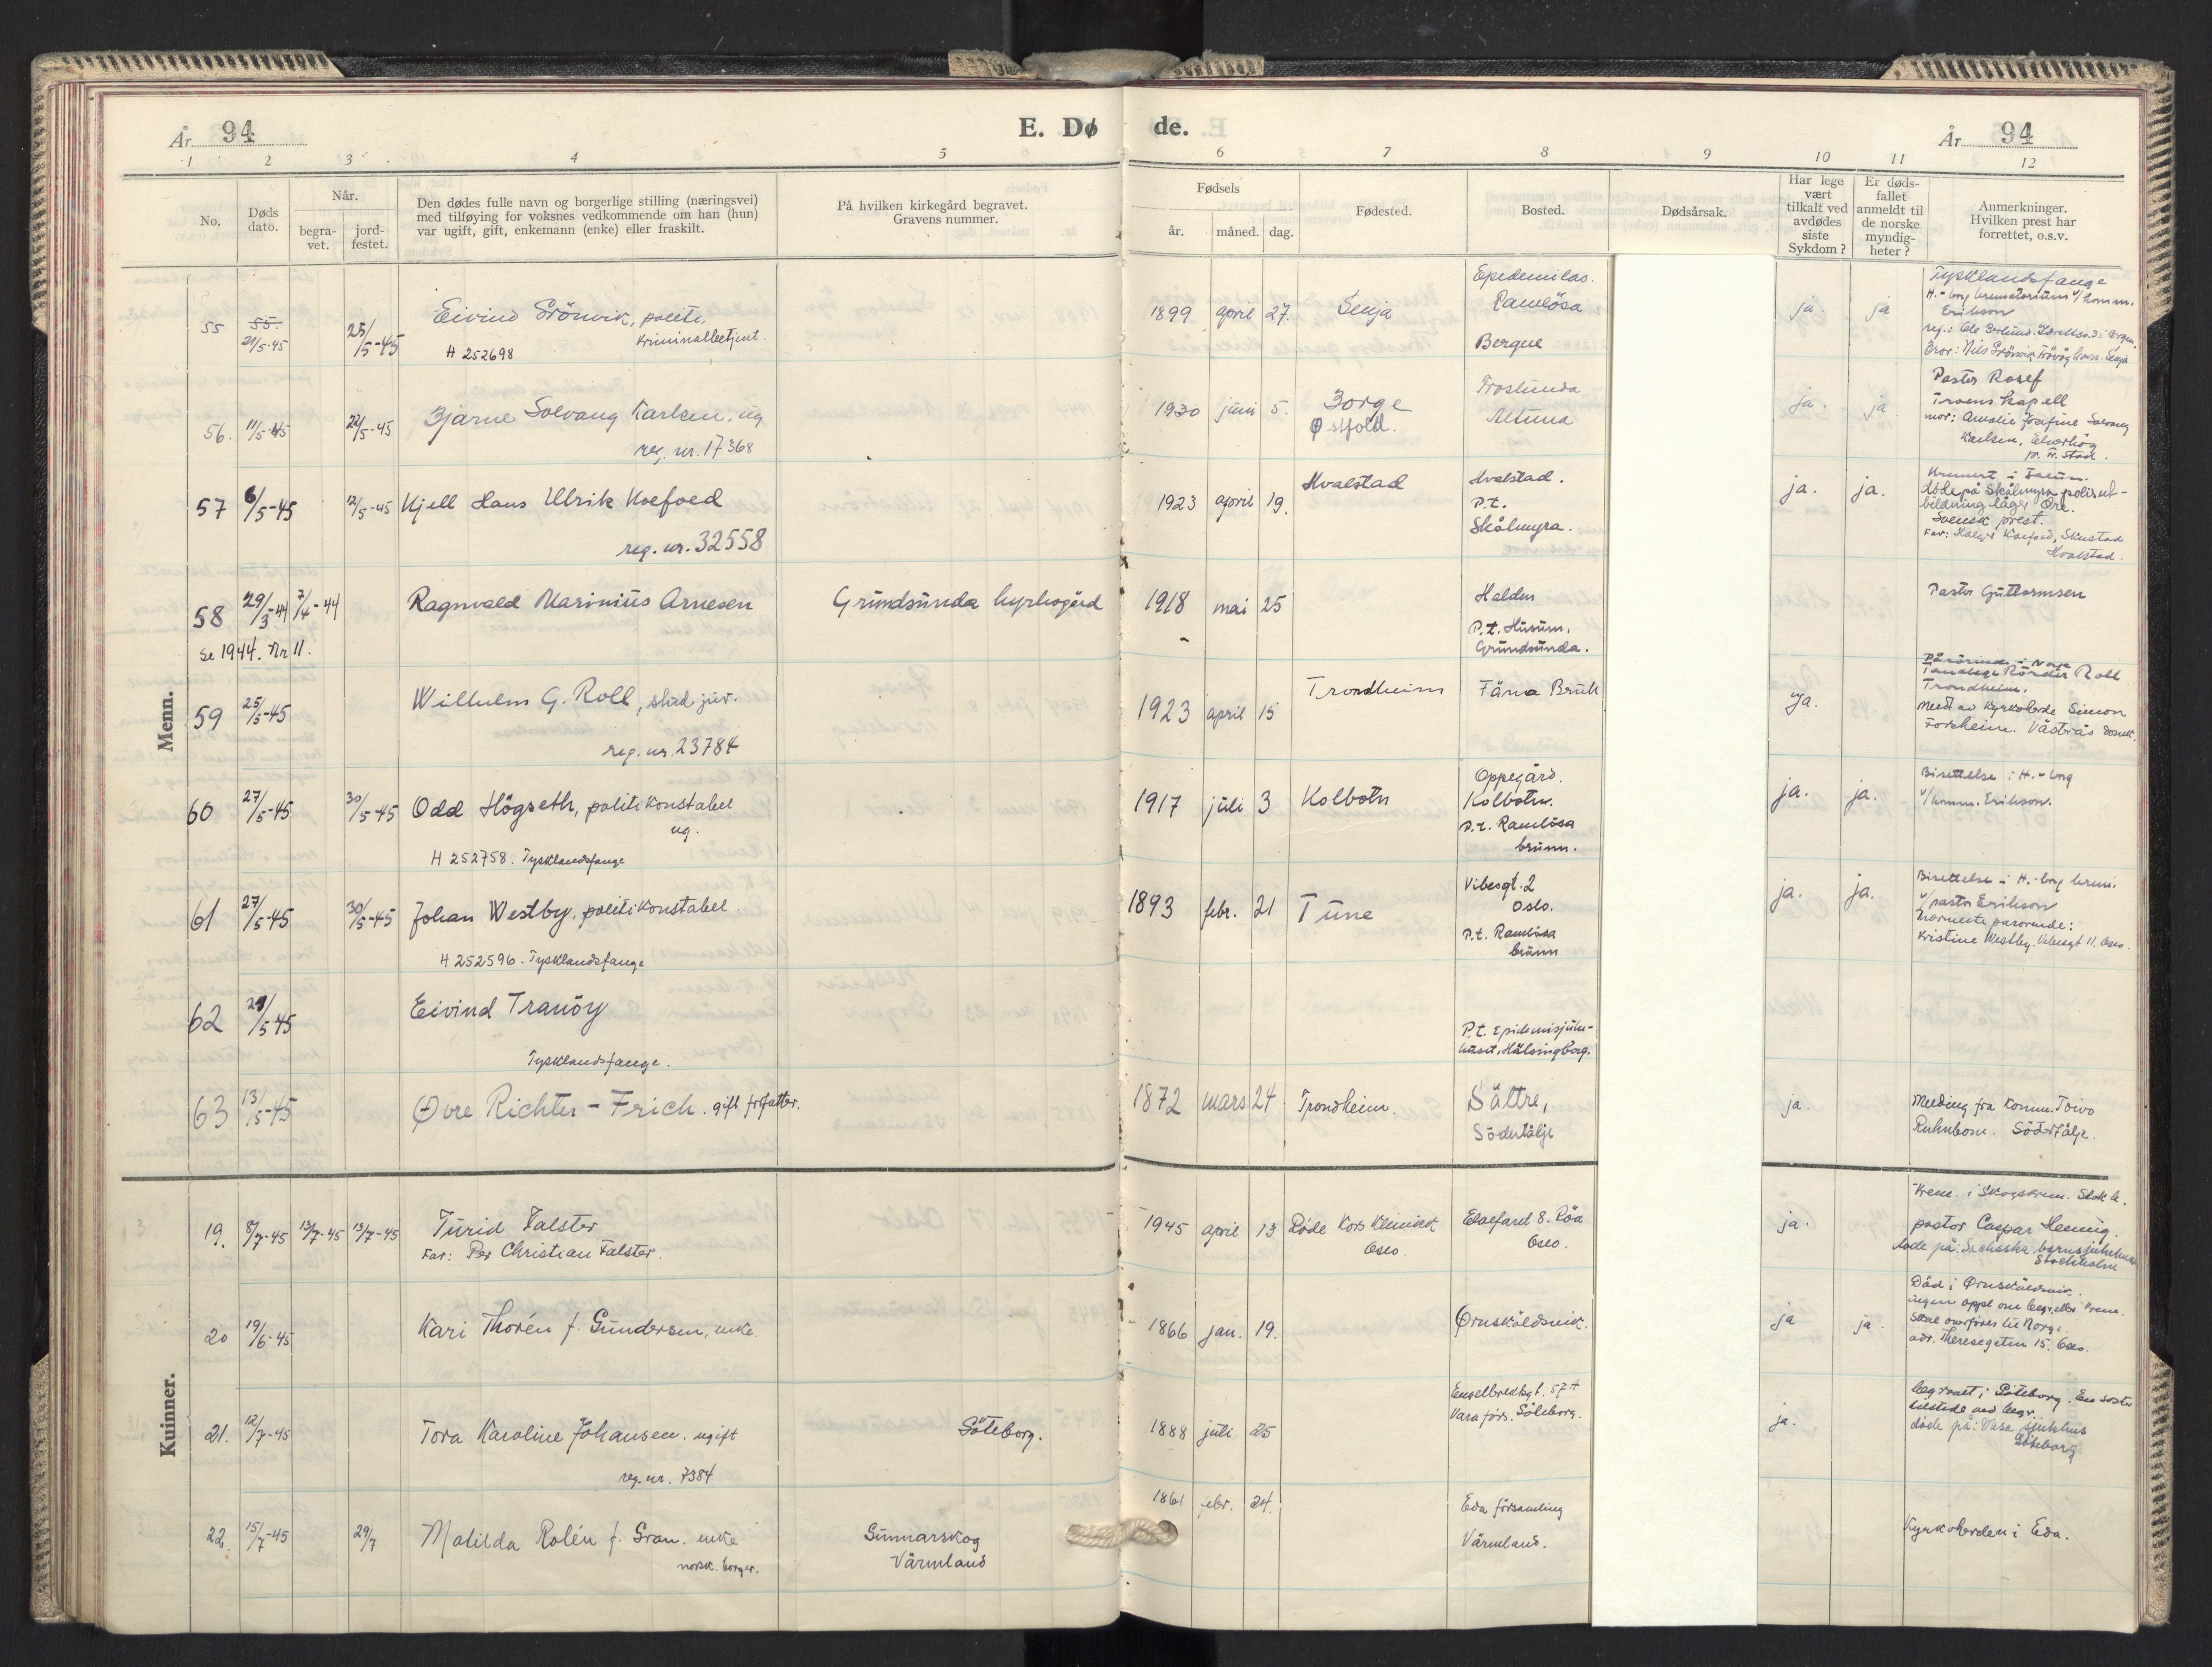 År 94
E. Døde.
År 94
1 2 3 4 5 6 7 8 9 10 11 12
No.
Døds dato.
Når.
begravet.
jordfestet.
Den dødes fulle navn og borgerlige stilling (næringsvei)
med tilføying for voksnes vedkommende om han (hun)
var ugift, gift, enkemann (enke) eller fraskilt.
På hvilken kirkegård begravet.
Gravens nummer.
Fødsels
år. måned. dag.
Fødested.
Bosted.
Dødsårsak.
Har lege
vært
tilkalt ved
avdødes
siste
Sykdom?
Er døds-
fallet
anmeldt til
de norske
myndig-
heter?
Anmerkninger.
Hvilken prest har
forrettet, o.s.v.
Menn.
55 21/5-45 25/5-45 Eivind Grönvik, politi,
kriminalbetjent.
H 252698
1899 april 27. Senja
Epedemilas.
Ramlösa
Bergen
ja. ja
Tysklandsfange
H.-borg krematorium v/ komm.
Erikson
56. 11/5-45 22/5-45 Bjarne Solvang Karlsen, ug
reg. nr. 17368
1930 juni 5. Borge
Østfold.
Froslunda
Altuna
ja. ja
Pastor Rosef
Trons kapell
mor: Amalie Josefine Solvang
Karlsen,
57 6/5-45 12/5-45 Kjell Hans Ulrik Koefoed
reg. nr. 32558
1923 april 19. Hvalstad
Hvalstad.
P.t.
Skålmyra.
ja. ja.
Kremert i Falun.
döde på Skålmyra polisut-
bildning läger Ore.
Svensk prest.
Far: Helge Koefoed, Skustad
Hvalstad.
58 29/3-44 7/4-44 Ragnvald Marinius Arnesen
Grundsunda kyrkogård
se 1944. Nr 11.
1918 mai 25
Halden
P.t. Husum,
Grundsunda.
Pastor Guttormsen
59 25/5-45 Wilhelm G. Roll, stud jur.
reg. nr. 23784
1923 april 15 Trondheim
Färna Bruk
ja.
Roll
Trondheim.
Meedt av Kyrkoherde Simon
Forsheim. Västerås
60 27/5-45 30/5-45 Odd Högseth, politikonstabel
ug.
H 252758. Tysklandsfange
1917 juli 3 Kolbotn
Oppegård.
Kolbotn.
P.t. Ramlösa
brunn.
ja. ja.
Bisettelse i H.-borg
v/komm. Erikson.
61 27/5-45 30/5-45 Johan Westby, politikonstabel.
H 252596. Tysklandsfange
1893 febr. 21 Tune
Vibesgt. 2
Oslo.
P.t. Ramlösa
brunn
ja. ja.
Bisettelse i H.-borg krem.
v/pastor Erikson
Nærmeste pårørende:
Kristine Westby. Vibesgt 11. Oslo.
62 29/5-45 Eivind Tranöy
Tysklandsfange.
P.t. Epidemisjuk-
huset, Hälsingborg.
63 13/5-45 Øvre Richter-Frich. gift forfatter.
1872 mars 24 Trondheim.
Sättre,
Södertälje
ja.
Melding fra Komm. Toivo
Ruhnbom. Södertälje.
Kuinner.
19. 8/7-45 13/7-45 13/7-45 Turid Falster
Far: Per Christian Falster.
1945 april 13 Røde Kors Klinikk
Oslo.
Elvefaret 8. Röa
Oslo.
ja.
Krem. i Skogskrem. Stokh.
pastor Caspar Henning.
døde på: Sachsska barnsjukhuset
Stockholm
20 19/6-45 Kari Thorén f. Gundersen, enke
1866 jan. 19.
Ørnsköldsvik.
ja ja.
Död i Ørnsköldsvik.
ingen oppl om begr. eller krem.
Skal overføres til Norge.
adr. Theresegaten 15. Oslo.
21. 12/7-45 Tora Karoline Johansen. ugift
reg. nr. 7384
Göteborg.
1888 juli 25
Engelbrechtsgt. 57 A
Vasa förs. Göteborg.
ja.
begravet i Göteborg. En søster
tilstede ved begr.
døde på: Vasa sjukhus
Göteborg
22. 15/7-45 29/7 Matilda Rolén f. Gran. enke
norsk. borger.
Gunnarskog
Värmland
1861 febr. 24.
Eda församling
Värmland.
Kyrkoherden i Eda.